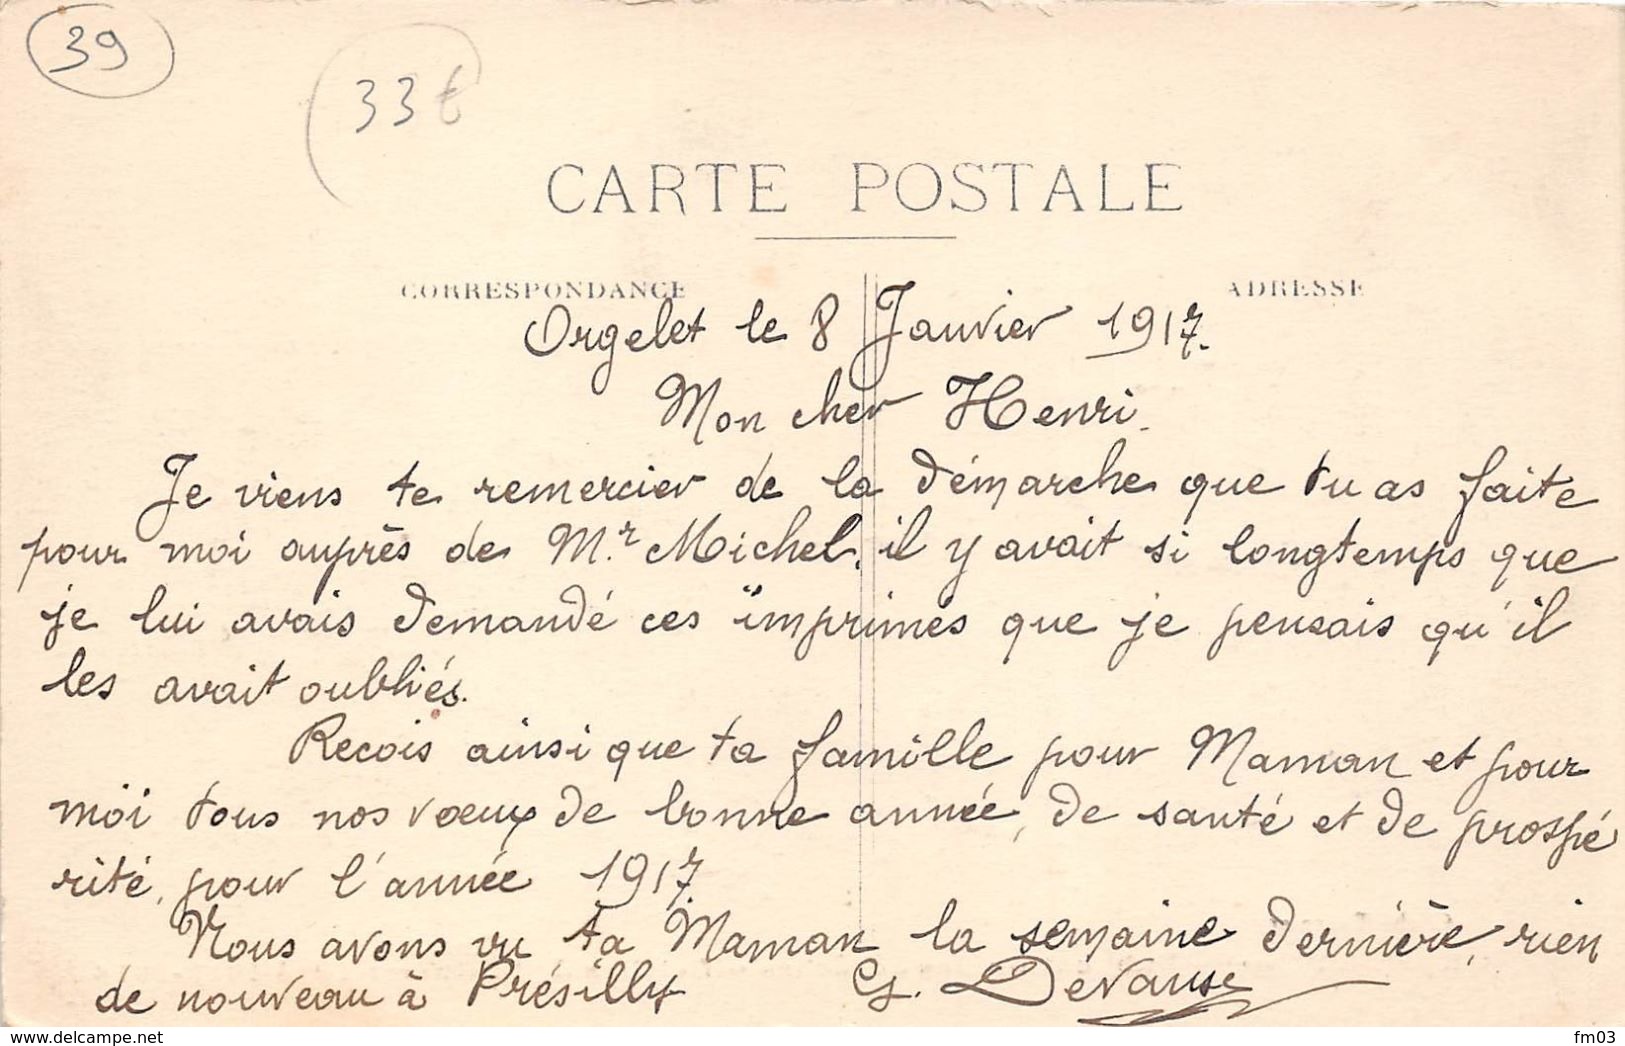 39
33€
CARTE POSTALE
CORRESPONDANCE
ADRESSE
Orgelet le 8 Janvier 1917.
Mon cher Henri.
Je viens te remercier de la démarche que tu as faite
pour moi auprès de Mr. Michel, il y avait si longtemps que
je lui avais demandé ces imprimés que je pensais qu'il
les avait oubliés.
Recois ainsi que ta famille pour Maman et pour
moi tous nos voeux de bonne année, de santé et de prospé
rité, pour l'année 1917
Nous avons vu ta Maman la semaine dernière, rien
de nouveau à Présilly G.
www.delcampe.net
fm03